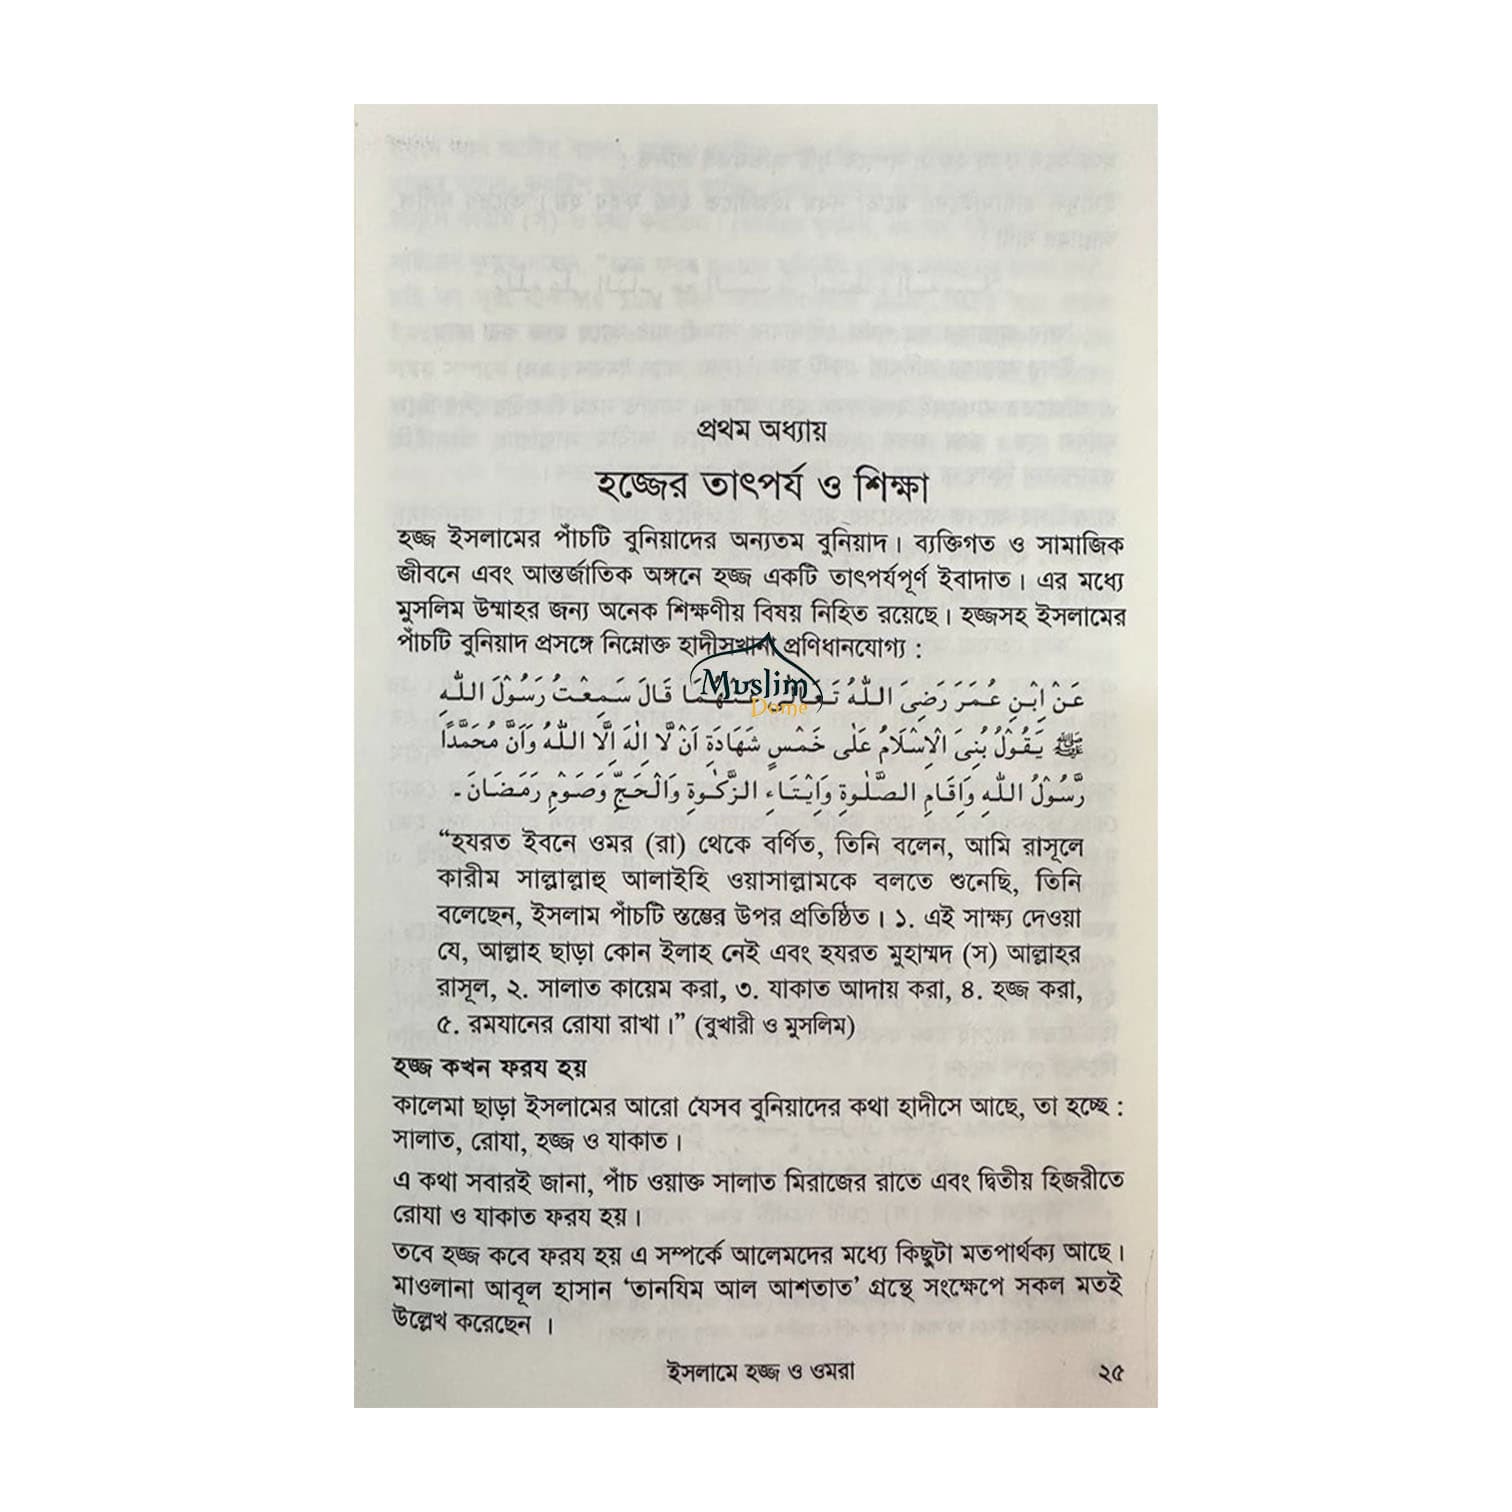 প্রথম অধ্যায়
হজ্জের তাৎপর্য ও শিক্ষা
হজ্জ ইসলামের পাঁচটি বুনিয়াদের অন্যতম বুনিয়াদ। ব্যক্তিগত ও সামাজিক
জীবনে এবং আন্তর্জাতিক অঙ্গনে হজ্জ একটি তাৎপর্যপূর্ণ ইবাদাত। এর মধ্যে
মুসলিম উম্মাহর জন্য অনেক শিক্ষণীয় বিষয় নিহিত রয়েছে। হজ্জসহ ইসলামের
পাঁচটি বুনিয়াদ প্রসঙ্গে নিম্নোক্ত হাদীসখানা প্রণিধানযোগ্য :
Muslim
Dome
عَنْ اِبْنِ عُمَرَ رَضِىَ اللّٰهُ تَعَالٰى عَنْهُمَا قَالَ سَمِعْتُ رَسُوْلَ اللّٰهِ
ﷺ يَقُوْلُ بُنِىَ الْاِسْلَامُ عَلٰى خَمْسٍ شَهَادَةِ اَنْ لَّا اِلٰهَ اِلَّا اللّٰهُ وَاَنَّ مُحَمَّدًا
رَّسُوْلُ اللّٰهِ وَاِقَامِ الصَّلٰوةِ وَاِيْتَاءِ الزَّكٰوةِ وَالْحَجِّ وَصَوْمِ رَمَضَانَ ـ
“হযরত ইবনে ওমর (রা) থেকে বর্ণিত, তিনি বলেন, আমি রাসূলে
কারীম সাল্লাল্লাহু আলাইহি ওয়াসাল্লামকে বলতে শুনেছি, তিনি
বলেছেন, ইসলাম পাঁচটি স্তম্ভের উপর প্রতিষ্ঠিত। ১. এই সাক্ষ্য দেওয়া
যে, আল্লাহ ছাড়া কোন ইলাহ নেই এবং হযরত মুহাম্মদ (স) আল্লাহর
রাসূল, ২. সালাত কায়েম করা, ৩. যাকাত আদায় করা, ৪. হজ্জ করা,
৫. রমযানের রোযা রাখা।” (বুখারী ও মুসলিম)
হজ্জ কখন ফরয হয়
কালেমা ছাড়া ইসলামের আরো যেসব বুনিয়াদের কথা হাদীসে আছে, তা হচ্ছে :
সালাত, রোযা, হজ্জ ও যাকাত।
এ কথা সবারই জানা, পাঁচ ওয়াক্ত সালাত মিরাজের রাতে এবং দ্বিতীয় হিজরীতে
রোযা ও যাকাত ফরয হয়।
তবে হজ্জ কবে ফরয হয় এ সম্পর্কে আলেমদের মধ্যে কিছুটা মতপার্থক্য আছে।
মাওলানা আবূল হাসান ‘তানযিম আল আশতাত’ গ্রন্থে সংক্ষেপে সকল মতই
উল্লেখ করেছেন ।
ইসলামে হজ্জ ও ওমরা
২৫